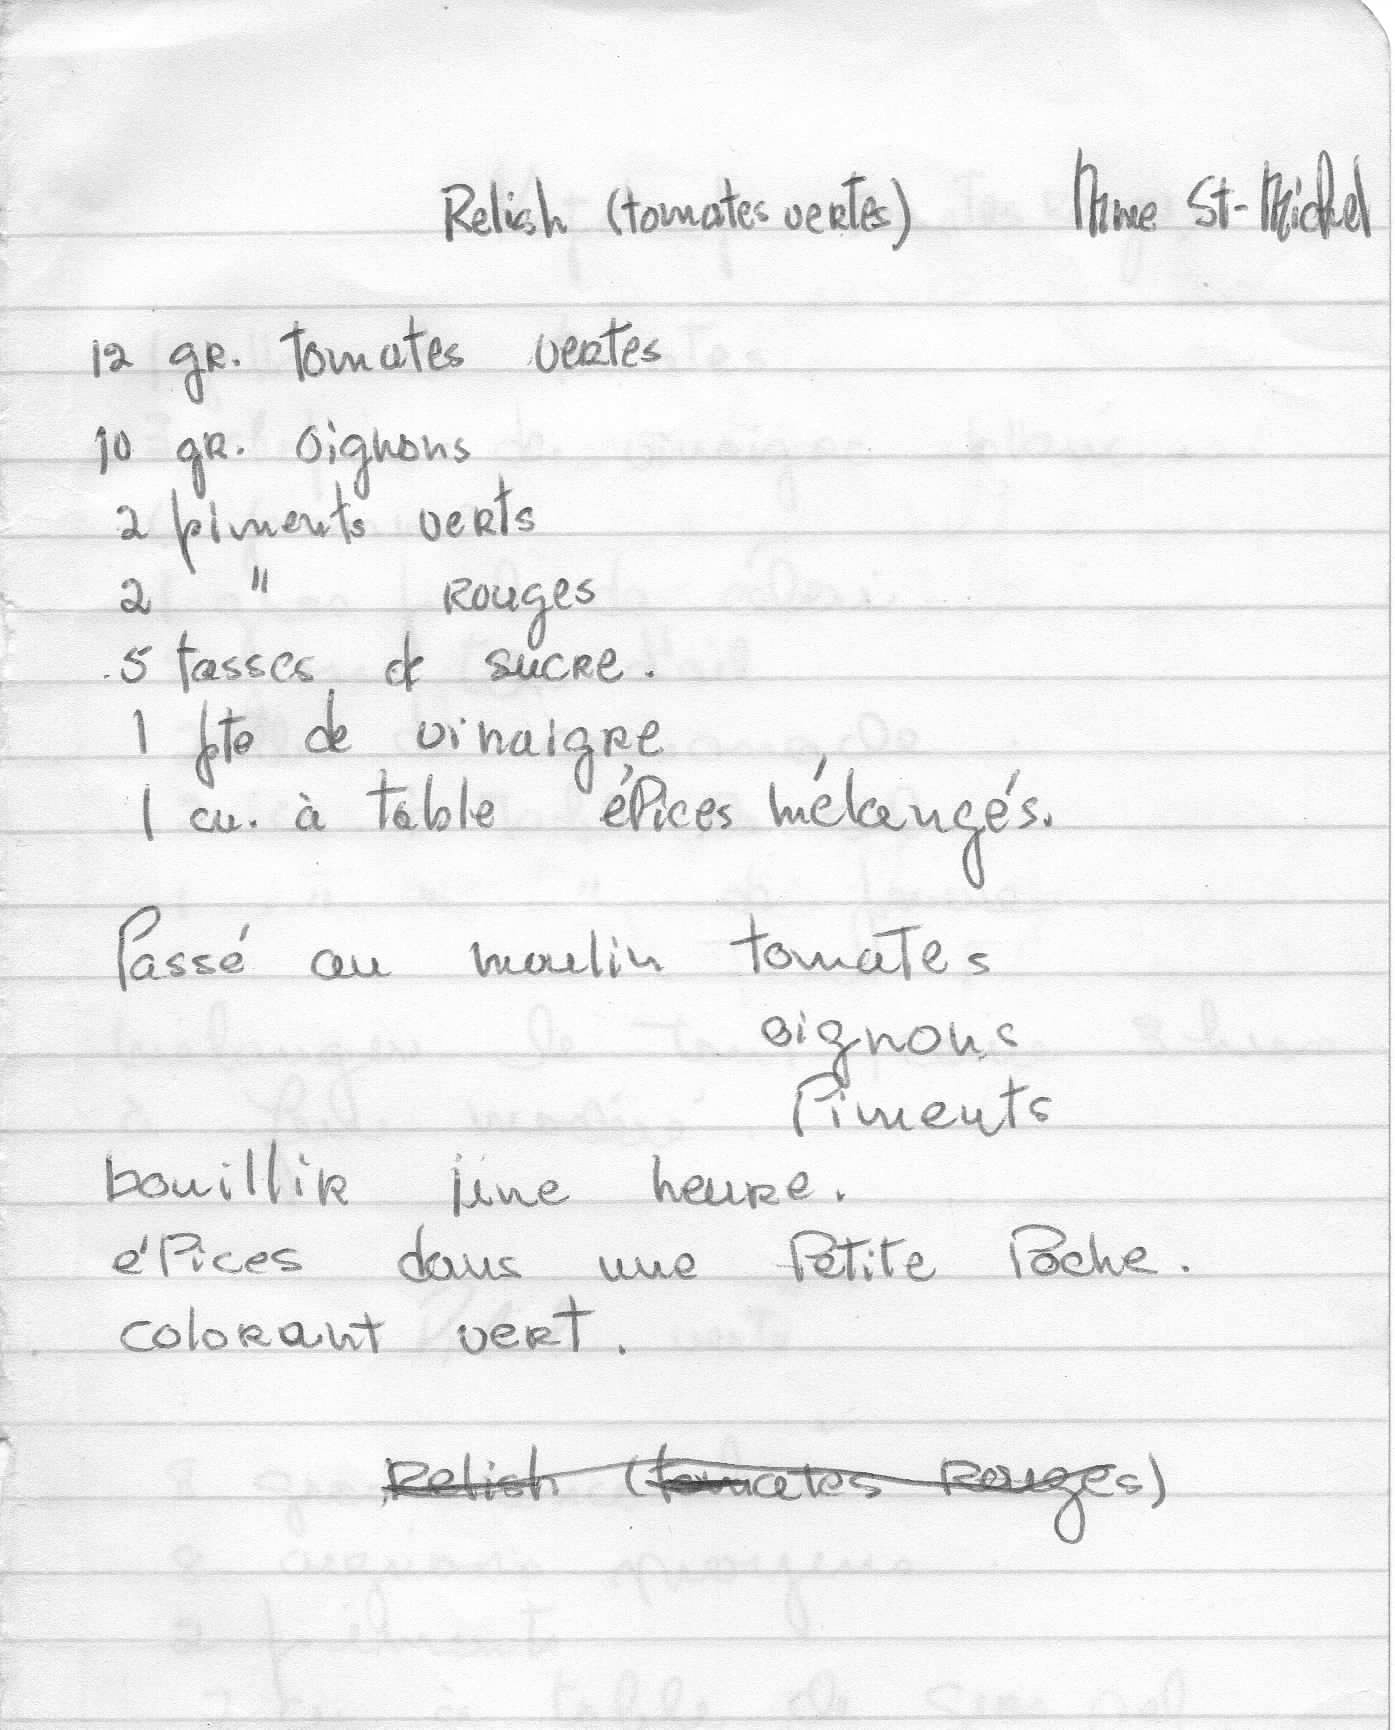 Relish (tomates vertes) Mme St-Michel
12 gr. tomates vertes
10 gr. oignons
2 piments verts
2 " rouges
5 tasses de sucre.
1 pte de vinaigre
1 cu. à table épices mélangés.
Passé au moulin tomates
oignons
Piments
bouillir une heure.
épices dans une Petite Poche.
colorant vert.
Relish (tomates Rouges)